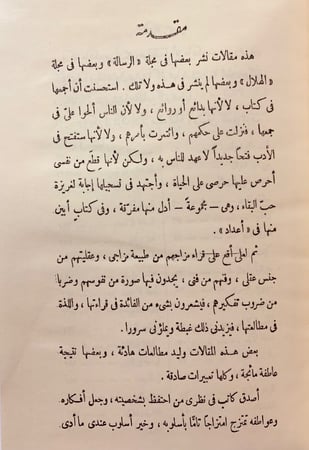 مقدمة
هذه مقالات نشر بعضها فى مجلة « الرسالة » وبعضها فى مجلة
« الهلال » وبعضها لم ينشر فى هذه ولا تلك . استحسنت أن أجمعها
فى كتاب ، لا لأنها بدائع أو روائع ، ولا لأن الناس ألحوا علىّ فى
جمعها ، فنزلت على حكمهم ، وائتمرت بأمرهم ، ولا لأنها ستفتح فى
الأدب فتحا جديداً لا عهد للناس به ، ولكن لأنها قِطَع من نفسى
أحرص عليها حرصى على الحياة ، وأجتهد فى تسجيلها إجابة لغريزة
حب البقاء ، وهى – مجموعة – أدل منها مفرّقة ، وفى كتاب أبين
منها فى « أعداد » .
ثم لعلى أقع على قراء مزاجهم من طبيعة مزاجى ، وعقليتهم من
جنس عقلى ، وفنهم من فنى ، يجدون فيها صورة من نفوسهم وضربا
من ضروب تفكيرهم ، فيشعرون بشىء من الفائدة فى قراءتها ، واللذة
فى مطالعتها ، فيزيدنى ذلك غبطة ويملؤنى سرورا .
بعض هذه المقالات وليد مطالعات هادئة ، وبعضها نتيجة
عاطفة مائجة ، وكلها تعبيرات صادقة .
أصدق كاتب فى نظرى من احتفظ بشخصيته ، وجعل أفكاره
وعواطفه تمتزج امتزاجا تامًّا بأسلوبه ، وخير أسلوب عندى ما أدى